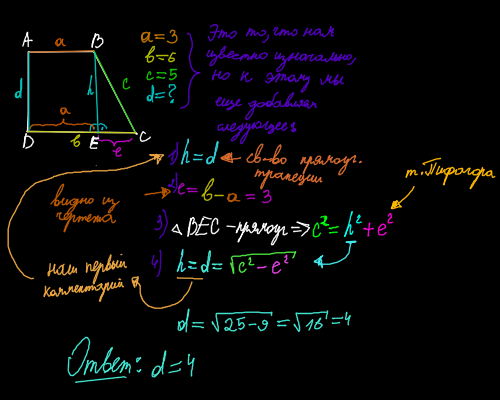 A a B
d h c
a
D b E e C
a=3
b=6
c=5
d=?
Это то, что нам
известно изначально,
но к этому мы
еще добавили
следующее:
1) h=d св-во прямоуг.
трапеции
2) e=b-a=3
видно из
чертежа
т. Пифагора
3) △BEC-прямоуг => c²=h²+e²
4) h=d=√c²-e²
наш первый
комментарий
d=√25-9=√16=4
Ответ: d=4